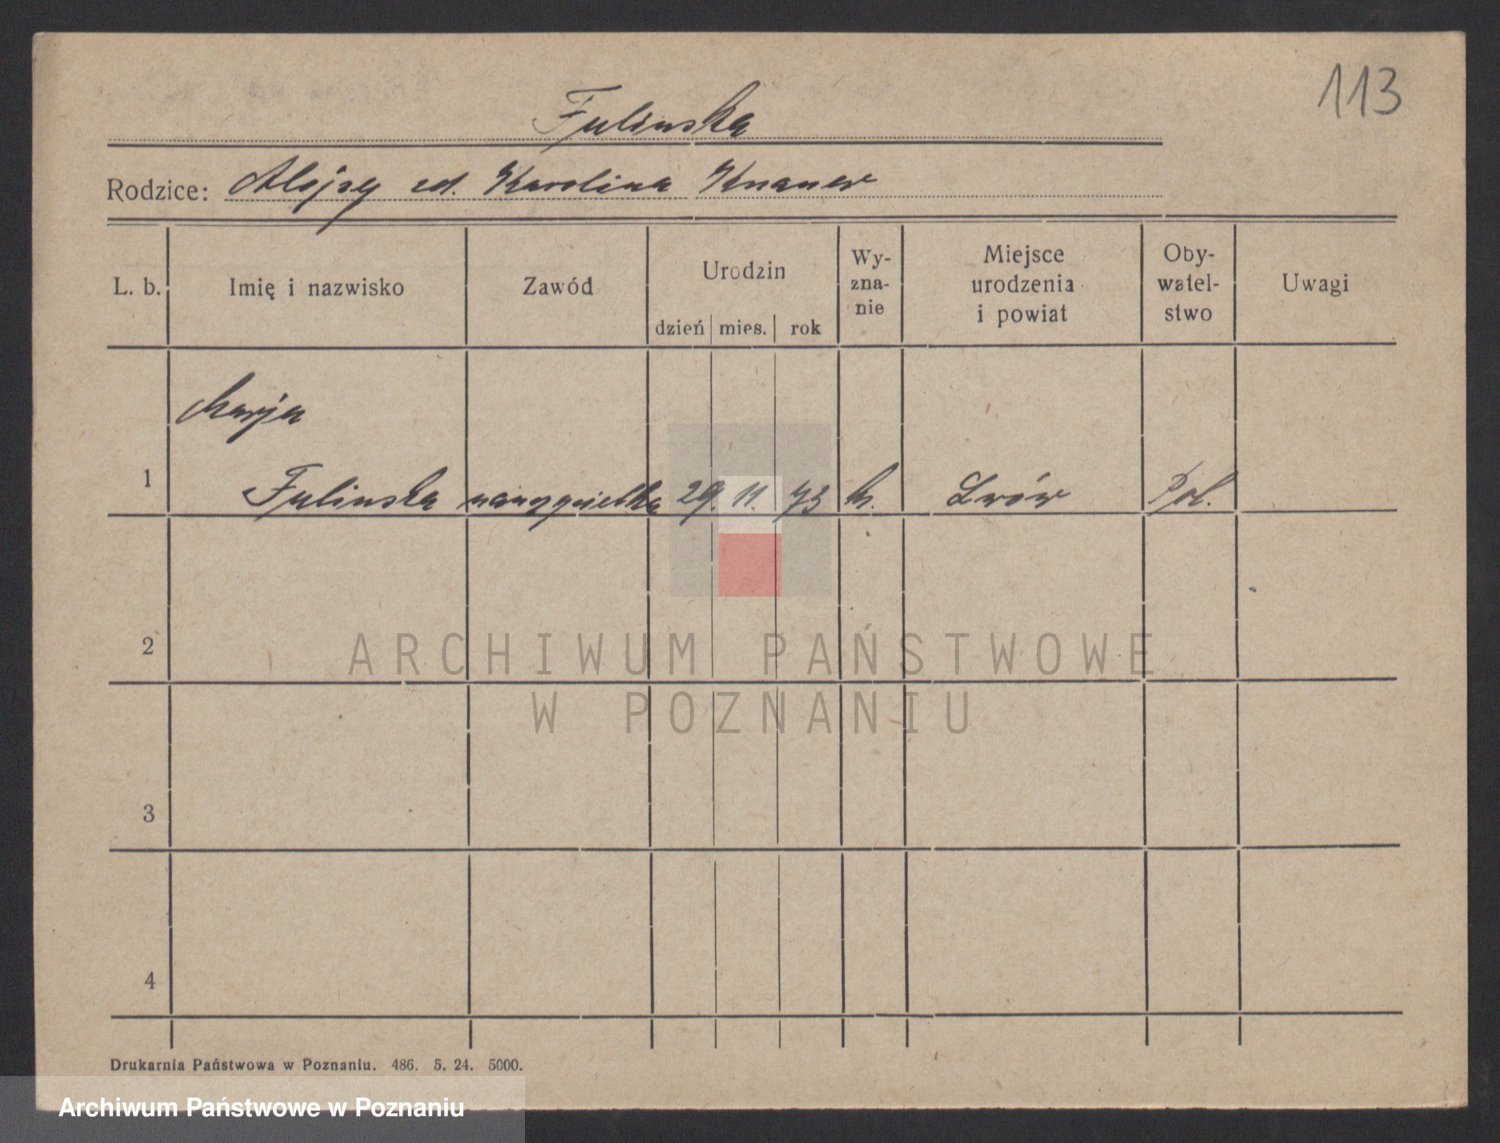 113
Fulinska
Rodzice: Alojzy zd. Karolina Knauer
L. b. Imię i nazwisko Zawód Urodzin Wy-zna-nie Miejsce urodzenia i powiat Oby-watel-stwo Uwagi
dzień mies. rok
Marja
1 Fulinska nauczycielka 29. 11. 73 k. Lwów Pol.
2
ARCHIWUM PAŃSTWOWE
W POZNANIU
3
4
Drukarnia Państwowa w Poznaniu. 486. 5. 24. 5000.
Archiwum Państwowe w Poznaniu